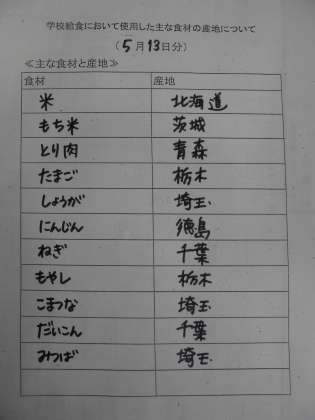 学校給食において使用した主な食材の産地について
(5月13日分)
≪主な食材と産地≫
食材 産地
米 北海道
もち米 茨城
とり肉 青森
たまご 栃木
しょうが 埼玉
にんじん 徳島
ねぎ 千葉
もやし 栃木
こまつな 埼玉
だいこん 千葉
みつば 埼玉